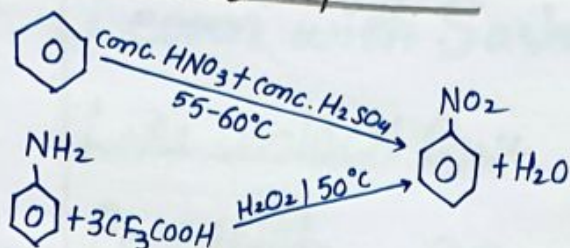 conc. HNO3 + conc. H2SO4
55-60°C
NO2
+ H2O
NH2
+ 3CF3COOH
H2O2 | 50°C